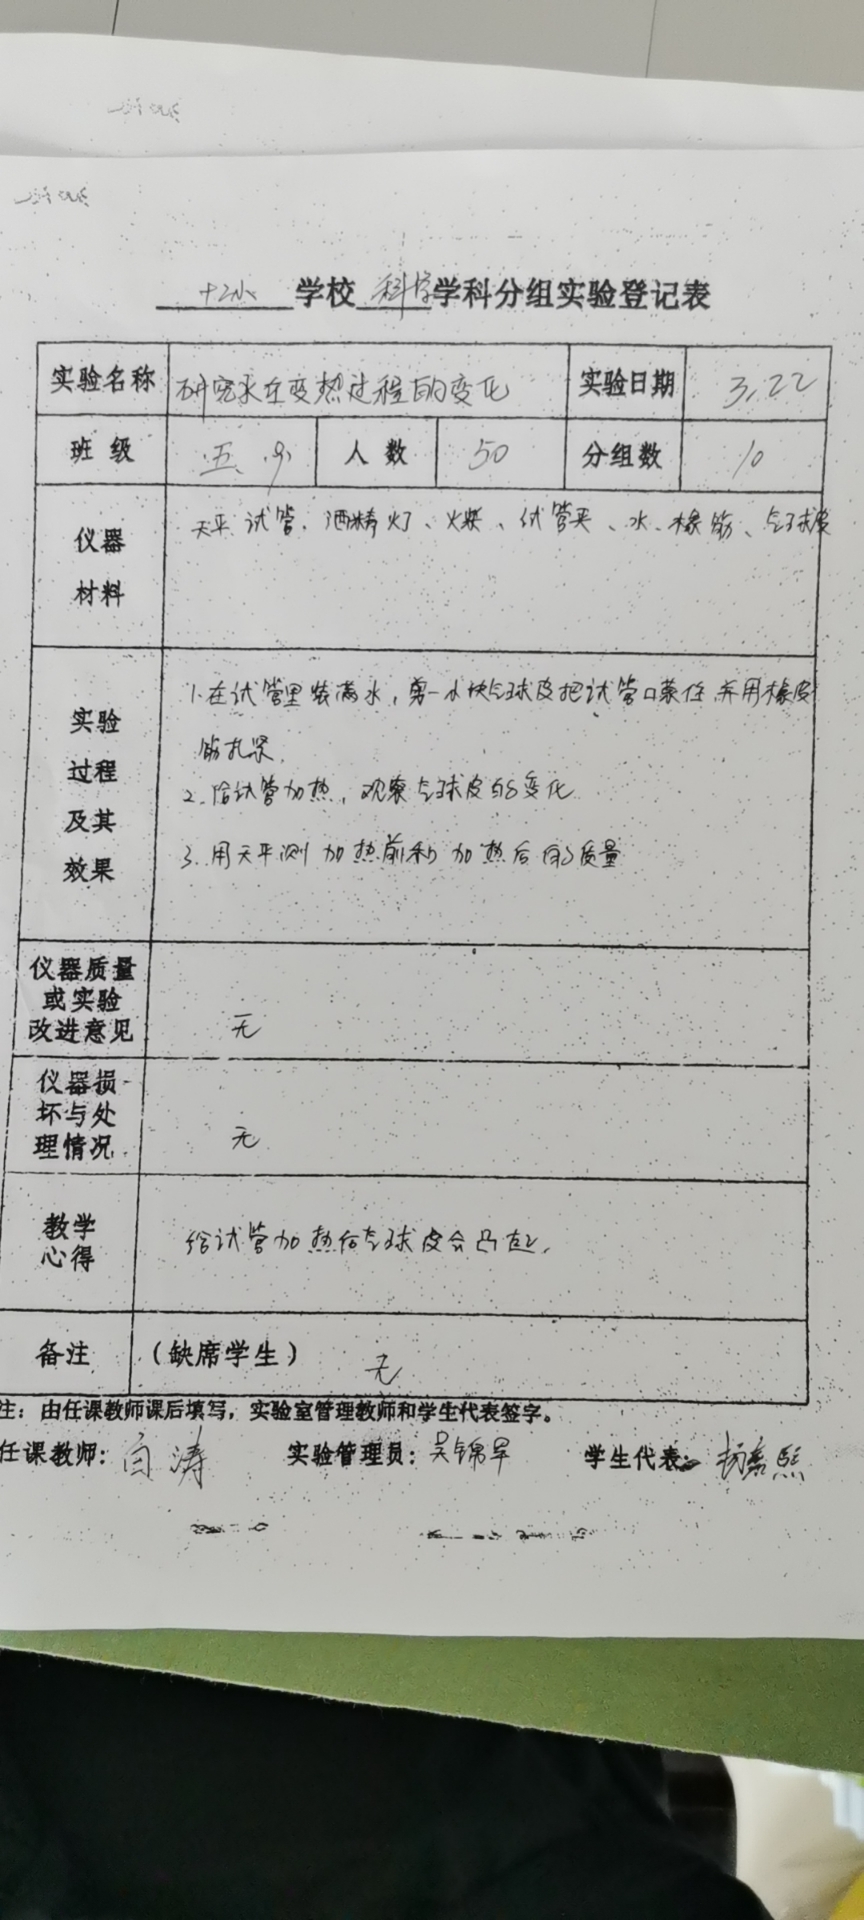 十二小 学校 科学 学科分组实验登记表
实验名称 研究水在变热过程的变化 实验日期 3.22
班级 五.9 人数 50 分组数 10
仪器材料 天平、试管、酒精灯、火柴、试管夹、水、橡筋、气球皮
实验过程及其效果 1.在试管里装满水,剪一小块气球皮把试管口蒙住,并用橡皮
筋扎紧.
2.给试管加热,观察气球皮的变化
3.用天平测加热前和加热后的质量
仪器质量或实验改进意见 无
仪器损坏与处理情况 无
教学心得 给试管加热后气球皮会凸起.
备注 (缺席学生) 无
注:由任课教师课后填写,实验室管理教师和学生代表签字。
任课教师:白涛 实验管理员:吴锦 学生代表: